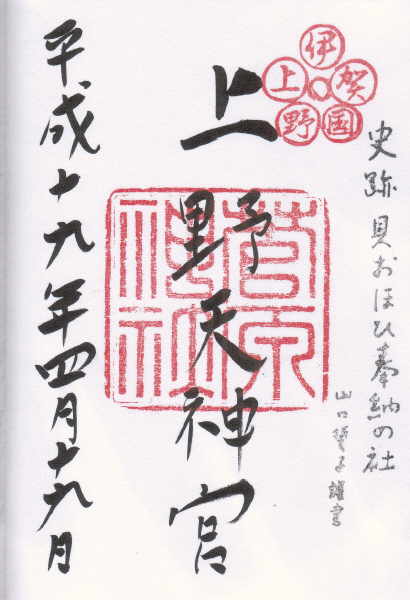 伊賀国上野
史跡 貝おほひ奉納の社
山口誓子謹書
上野天神宮
菅原神社
平成十九年四月十九日